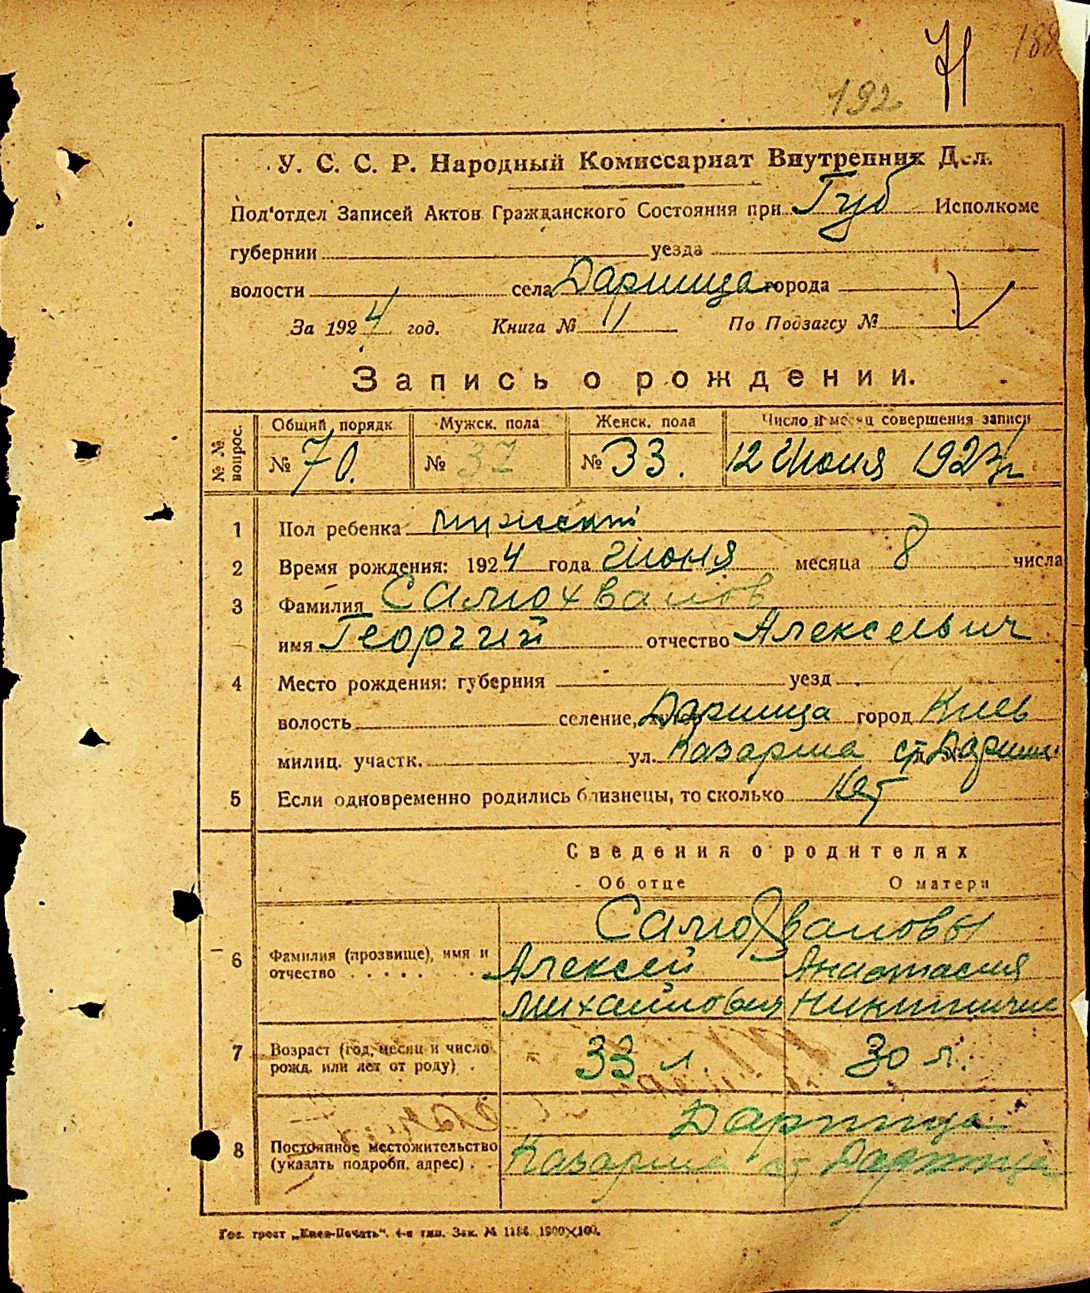 71
188
192
У. С. С. Р. Народный Комиссариат Внутренних Дел.
Под'отдел Записей Актов Гражданского Состояния при Губ Исполкоме
губернии уезда
волости села Дарница города
За 1924 год. Книга № 1 По Подзагсу №
Запись о рождении.
№ № вопрос.
Общий порядк Мужск. пола Женск. пола Число и месяц совершения записи
№ 70. № 37 № 33. 12 Июня 192
1 Пол ребенка мужской
2 Время рождения: 1924 года Июня месяца 8 числа
3 Фамилия Самохвалов
имя Георгий отчество Алексеевич
4 Место рождения: губерния уезд
волость селение Дарница город Киев
милиц. участк. ул. Казарма ст. Дарниц
5 Если одновременно родились близнецы, то сколько Нет
Сведения о родителях
Об отце О матери
Самохваловы
6 Фамилия (прозвище), имя и отчество Алексей Анастасия
Михайлович Никитичн
7 Возраст (год, месяц и число рожд. или лет от роду) 33 л. 30 л.
Дарница
8 Постоянное местожительство (указать подробн. адрес) Казарма ст Дарница
Гос. трест „Киев-Печать“. 4-я тип. Зак. № 1186. 1900×100.